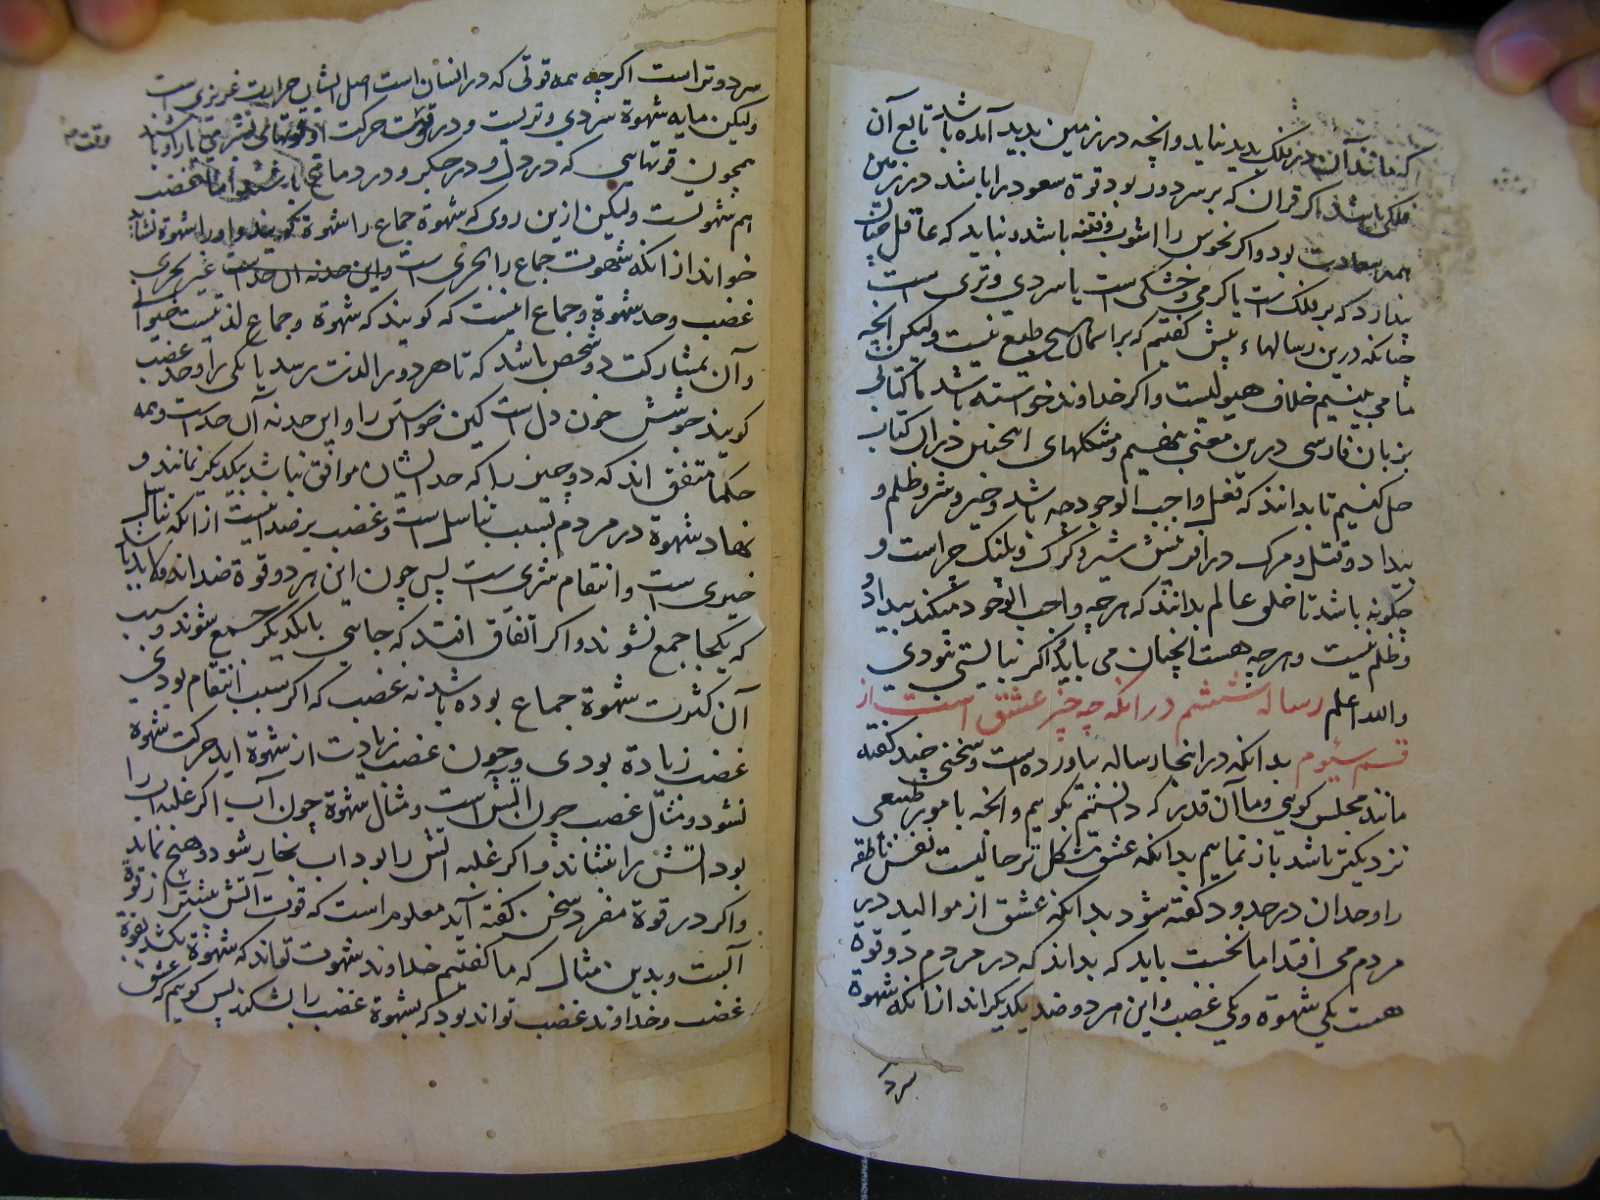 که مانند آن در فلک پدید نیاید و آنچه در زمین پدید آمده باشد تابع آن
فلکی باشد اگر قران که بر سر دور بود قوة سعود را باشد در زمین
همه سعادت بود و اگر نحوس را آشوب و فتنه باشد و نباید که عاقل چنان
پندارد که بر فلک است یا گرمی و خشکی است یا سردی و تری است
چنانکه درین رسالهاء پیش گفتیم که بر آسمان هیچ طبع نیست ولیکن آنچه
ما می بینیم خلاف هیولیست و اگر خداوند خواسته باشد ما کتابی
بزبان فارسی درین معنی بنهیم و مشکلهای اینچنین در آن کتاب
حل کنیم تا بدانند که فعل واجب الوجود چه باشد و خیر و شر و ظلم و
بیداد و قتل و مرگ در آفرینش شیر و گرگ و پلنگ چراست و
چگونه باشد تا خلق عالم بدانند که هرچه واجب الوجود میکند بیداد و
و ظلم نیست و هرچه هست آنچنان می باید و اگر نبایستی نبودی
والله اعلم رساله ششم در آنکه چه چیز عشق است از
قسم سیوم بدانکه در اینجا رساله بیاورده است و سخنی چند گفته
مانند مجلس گویی و ما آن قدر که دانستیم بگوییم و آنچه بامور طبیعی
نزدیکتر باشد باز نماییم بدانکه عشق مشکل تر حالیست نفس ناطقه
را و حد آن در حدود گفته شود بدانکه عشق از موالید در
مردم می افتد اما نخست باید که بداند که در مردم دو قوة
هست یکی شهوة و یکی غضب و این هر دو ضد یکدیگراند از آنکه شهوة
سرد
سرد و تر است اگرچه همه قوتی که در انسان است اصل ایشان حرارت غریزی است
ولیکن مایه شهوة سردی و تریست و در قوت حرکت
همچون قوتهایی که در دل و در جگر و در دماغ باشد اما غضب
هم شهوتست ولیکن ازین روی که شهوة جماع را شهوة گویند او را شهوة نشاید
خواند از آنکه شهوت جماع را بحری است و این حد نه آن حد است غیر بحری
غضب و حد شهوة و جماع اینست که گویند که شهوة و جماع لذتیست
و آن بمشارکت دو شخص باشد که تا هر دو را لذت برسد یا یکی را و حد غضب
گویند جوشش خون دل است کین خواستن را و این حد نه آن حد است و همه
حکما متفق اند که دو چیز را که حد ایشان موافق نباشد بیکدیگر نمانند و
نهاد شهوة در مردم بسبب تناسل است و غضب بر ضد اینست از آنکه تناسل
خیری است و انتقام شری است پس چون این هر دو قوة ضداند
که یکجا جمع نشوند و اگر اتفاق افتد که جایی با یکدیگر جمع شوند و سبب
آن کثرت شهوة جماع بوده باشد نه غضب که اگر سبب انتقام بودی
غضب زیادة بودی و چون غضب زیادت از شهوة آید حرکت شهوة
نشود و مثال غضب چون آتش است و مثال شهوة چون آب اگر غلبه آب را
بود آتش را بنشاند و اگر غلبه آتش را بود آب بخار شود و هیچ نماند
و اگر در قوة مفرد سخن گفته آید معلوم است که قوت آتش بیشتر از قوة
آبست و بدین مثال که ما گفتیم خداوند شهوت تواند که شهوة بکشد بقوة
غضب و خداوند غضب تواند بود که بشهوة غضب را بشکند پس گوییم که عشق